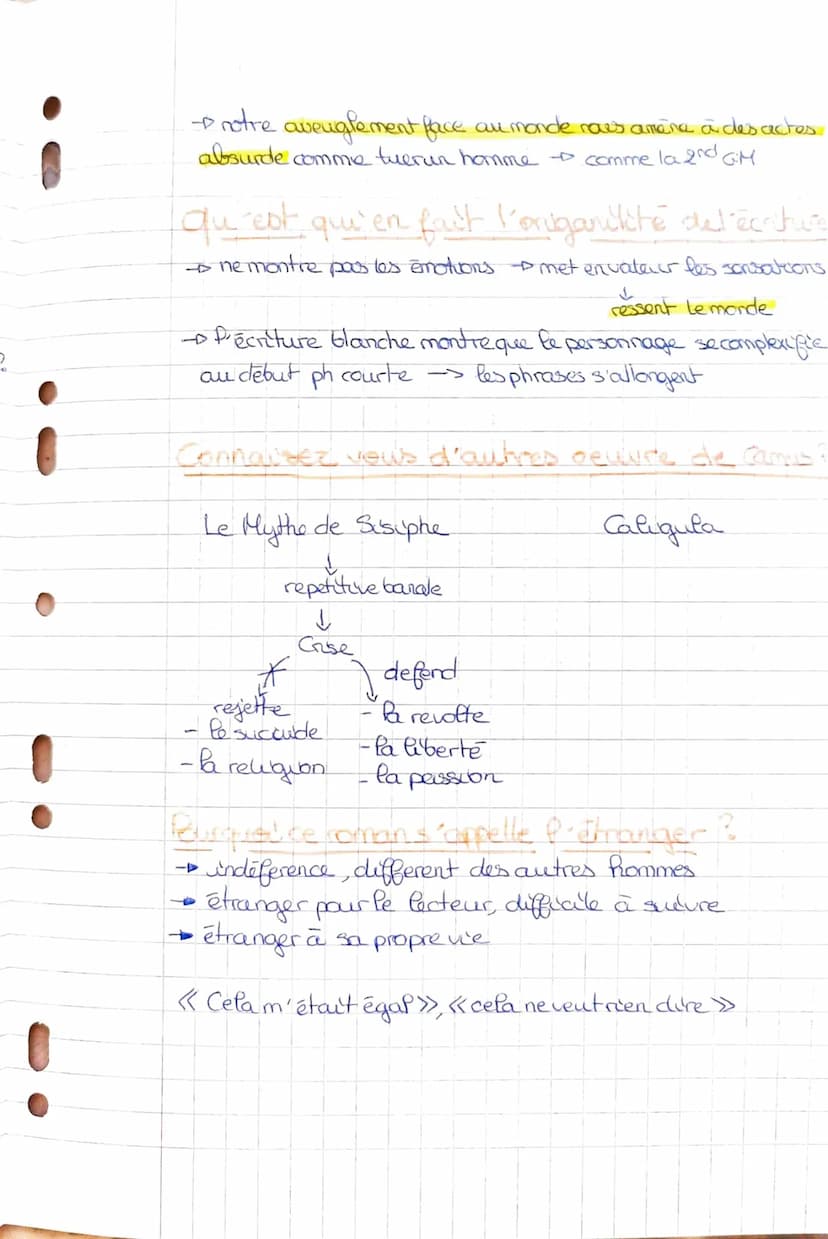 → notre aveuglement face au monde nous amène à des actes
absurde comme tuer un homme → comme la 2nd GM
Qu'est qui en fait l'origanilité de l'écriture
→ ne montre pas les émotions → met en valeur les sensations
↓
ressent le monde
→ l'écriture blanche montre que le personnage se complexifie
?
au début ph courte → les phrases s'allongent
Connaisez vous d'autres oeuvre de Camus ?
Le Mythe de Sisiphe Caligula
↓
repetitive banale
↓
Crise
defend
rejette - la revolte
- le succuide
- la liberté
- la religion
- la passion
Pourquoi ce roman s'appelle l'étranger ?
→ indéference, différent des autres hommes
→ étranger pour le lecteur, difficile à suivre
→ étranger à sa propre vie
« Cela m'était égal », « cela ne veut rien dire »